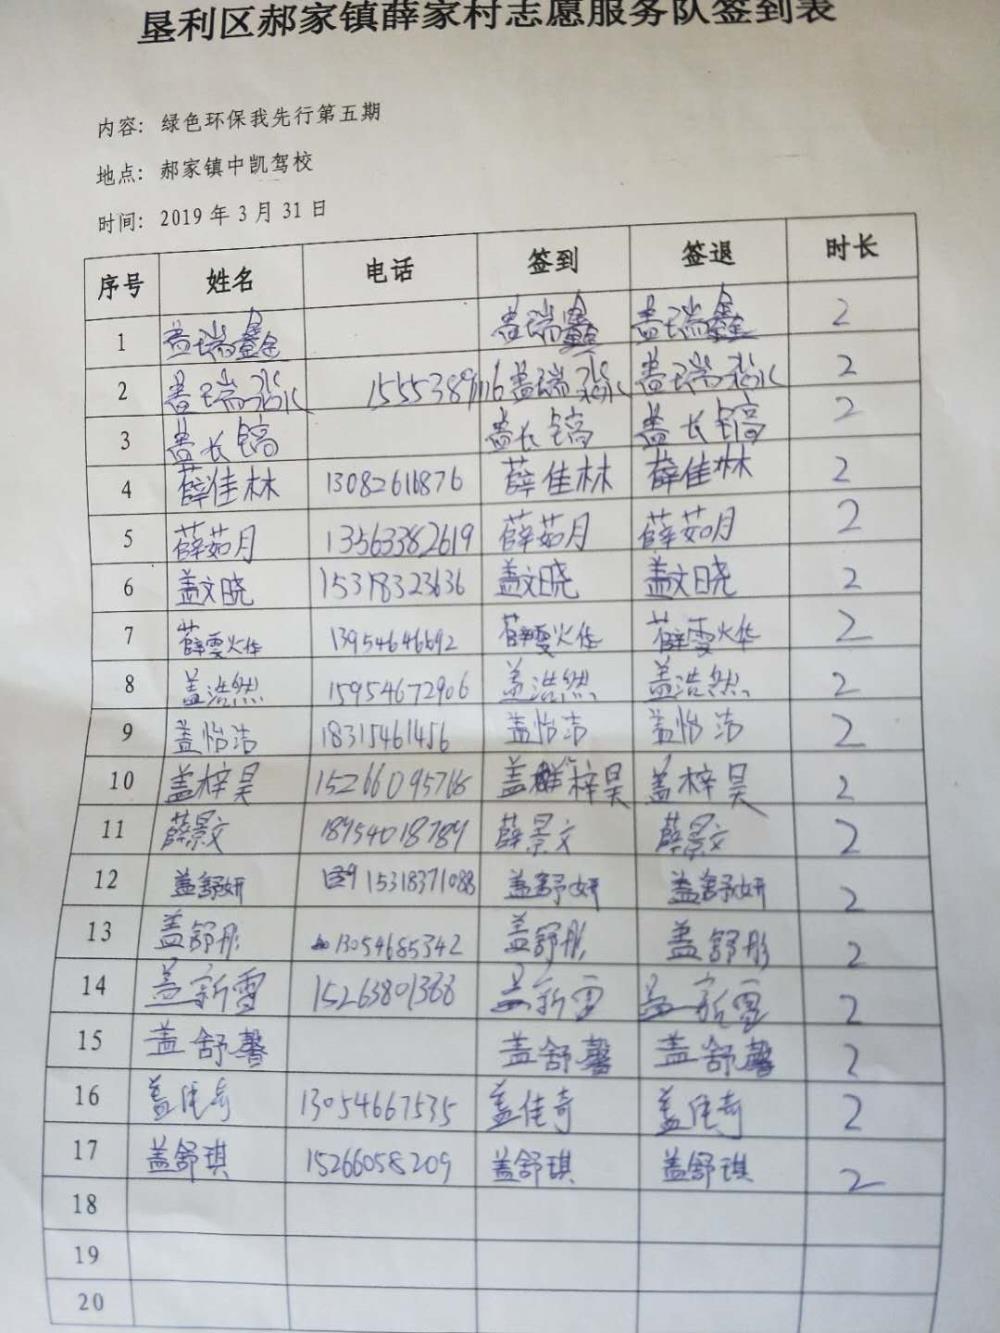 垦利区郝家镇薛家村志愿服务队签到表
内容：绿色环保我先行第五期
地点：郝家镇中凯驾校
时间：2019 年 3 月 31 日
序号 姓名 电话 签到 签退 时长
1 盖瑞鑫 盖瑞鑫 盖瑞鑫 2
2 盖瑞淼 15553891116 盖瑞淼 盖瑞淼 2
3 盖长镐 盖长镐 盖长镐 2
4 薛佳林 13082611876 薛佳林 薛佳林 2
5 薛茹月 13563382619 薛茹月 薛茹月 2
6 盖文晓 15318323636 盖文晓 盖文晓 2
7 薛雯烨 13954646692 薛雯烨 薛雯烨 2
8 盖浩然 15954672906 盖浩然 盖浩然 2
9 盖怡洁 18315461456 盖怡洁 盖怡洁 2
10 盖梓昊 盖梓昊 盖梓昊 2
11 薛景文 18954018789 薛景文 薛景文 2
12 盖舒妍 15318371088 盖舒妍 盖舒妍 2
13 盖舒彤 13054685342 盖舒彤 盖舒彤 2
14 盖新雪 15263801368 盖新雪 盖新雪 2
15 盖舒馨 盖舒馨 盖舒馨 2
16 盖佳奇 13054667535 盖佳奇 盖佳奇 2
17 盖舒琪 15266058209 盖舒琪 盖舒琪 2
18
19
20